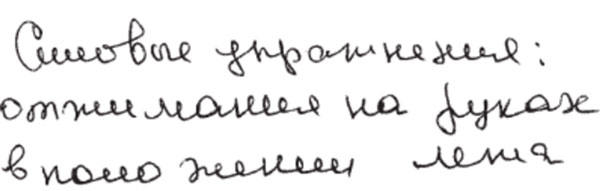 Силовые упражнения:
отжимания на руках
в положении лежа